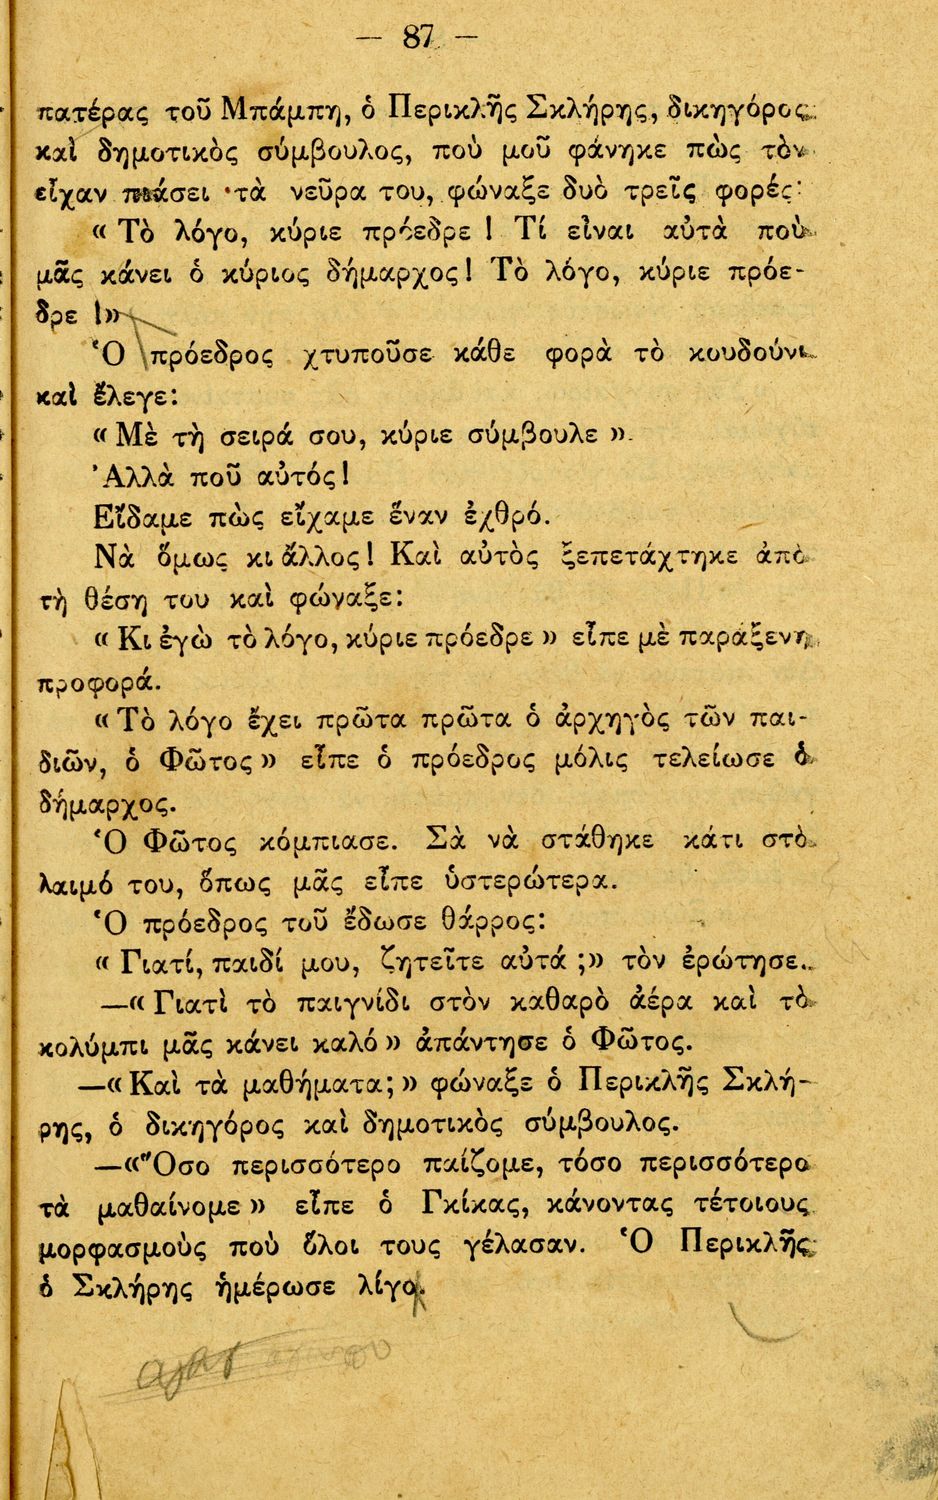 — 87 —
πατέρας τοῦ Μπάμπη, ὁ Περικλῆς Σκλήρης, δικηγόρος
καὶ δημοτικὸς σύμβουλος, ποὺ μοῦ φάνηκε πὼς τὸν
εἶχαν πιάσει τὰ νεῦρα του, φώναξε δυὸ τρεῖς φορές:
« Τὸ λόγο, κύριε πρόεδρε ! Τί εἶναι αὐτὰ ποὺ
μᾶς κάνει ὁ κύριος δήμαρχος! Τὸ λόγο, κύριε πρόε-
δρε !»
Ὁ πρόεδρος χτυποῦσε κάθε φορὰ τὸ κουδούνι
καὶ ἔλεγε:
« Μὲ τὴ σειρά σου, κύριε σύμβουλε ».
Ἀλλὰ ποῦ αὐτός!
Εἴδαμε πὼς εἴχαμε ἕναν ἐχθρό.
Νὰ ὅμως κι ἄλλος! Καὶ αὐτὸς ξεπετάχτηκε ἀπὸ
τὴ θέση του καὶ φώναξε:
« Κι ἐγὼ τὸ λόγο, κύριε πρόεδρε » εἶπε μὲ παράξενη
προφορά.
« Τὸ λόγο ἔχει πρῶτα πρῶτα ὁ ἀρχηγὸς τῶν παι-
διῶν, ὁ Φῶτος » εἶπε ὁ πρόεδρος μόλις τελείωσε ὁ
δήμαρχος.
Ὁ Φῶτος κόμπιασε. Σὰ νὰ στάθηκε κάτι στὸ
λαιμό του, ὅπως μᾶς εἶπε ὑστερώτερα.
Ὁ πρόεδρος τοῦ ἔδωσε θάρρος:
« Γιατί, παιδί μου, ζητεῖτε αὐτά ;» τὸν ἐρώτησε.
—« Γιατὶ τὸ παιγνίδι στὸν καθαρὸ ἀέρα καὶ τὸ
κολύμπι μᾶς κάνει καλό » ἀπάντησε ὁ Φῶτος.
—« Καὶ τὰ μαθήματα; » φώναξε ὁ Περικλῆς Σκλή-
ρης, ὁ δικηγόρος καὶ δημοτικὸς σύμβουλος.
—«Ὅσο περισσότερο παίζομε, τόσο περισσότερο
τὰ μαθαίνομε » εἶπε ὁ Γκίκας, κάνοντας τέτοιους
μορφασμοὺς ποὺ ὅλοι τους γέλασαν. Ὁ Περικλῆς
ὁ Σκλήρης ἡμέρωσε λίγο.